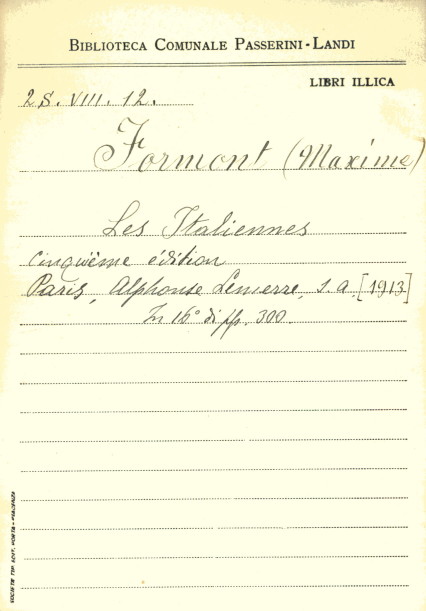 BIBLIOTECA COMUNALE PASSERINI-LANDI
LIBRI ILLICA
2S. VIII. 12.
Formont (Maxime)
Les Italiennes
cinquième édition
Paris, Alphonse Lemerre, s. a. [1913]
In 16° di pp. 300.